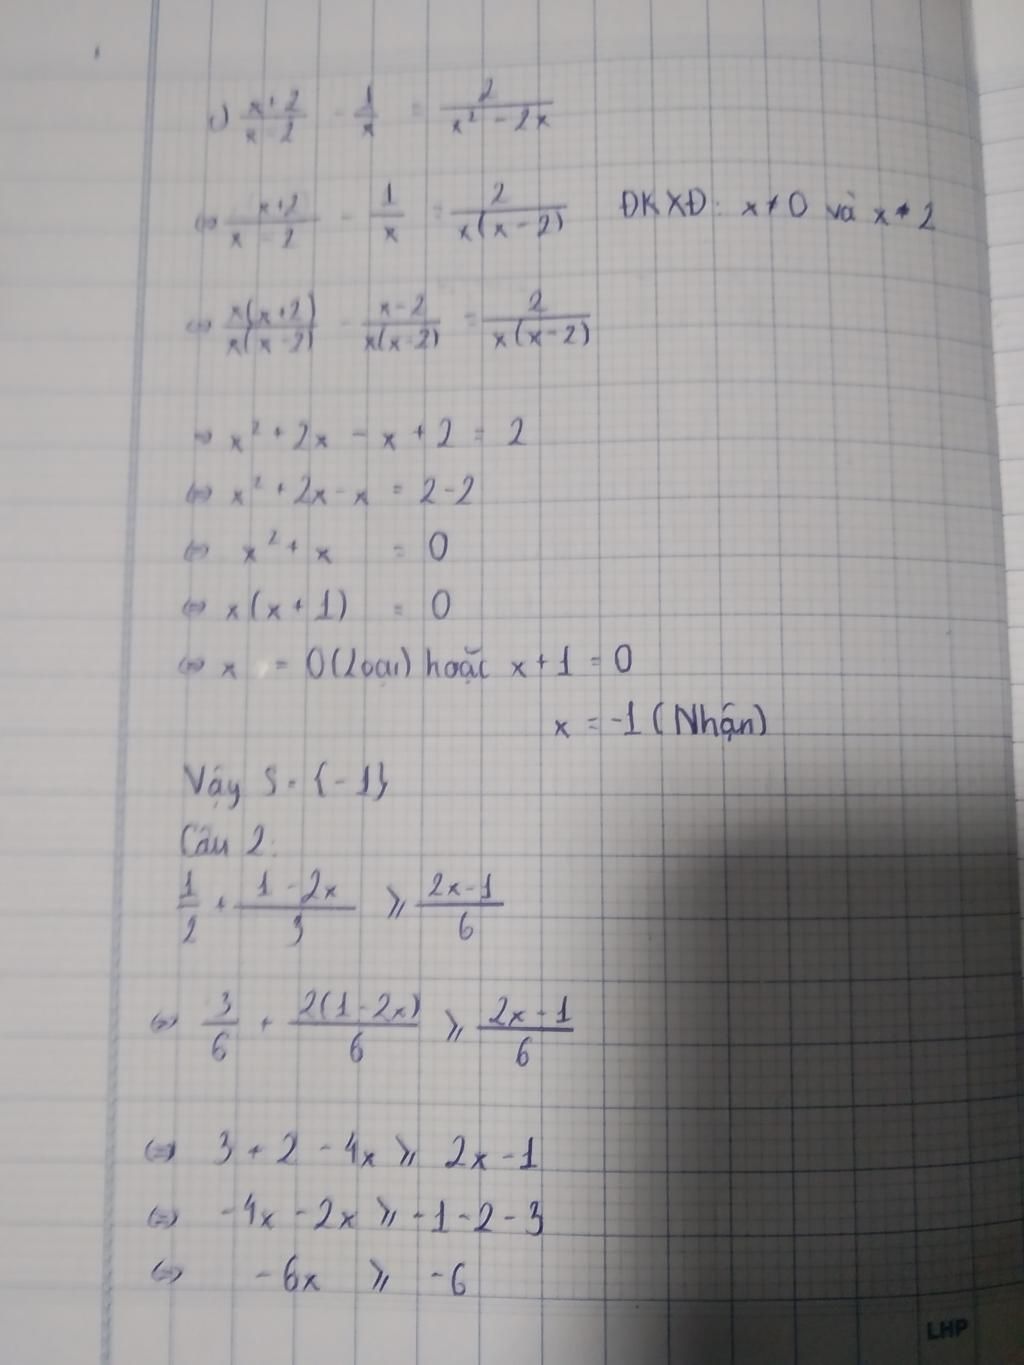 c) \frac{x+2}{x-2} - \frac{1}{x} = \frac{2}{x² - 2x}
⇔ \frac{x+2}{x-2} - \frac{1}{x} = \frac{2}{x(x-2)} ĐKXĐ: x ≠ 0 và x ≠ 2
⇔ \frac{x(x+2)}{x(x-2)} - \frac{x-2}{x(x-2)} = \frac{2}{x(x-2)}
⇒ x² + 2x - x + 2 = 2
⇔ x² + 2x - x = 2 - 2
⇔ x² + x = 0
⇔ x(x + 1) = 0
⇔ x = 0 (Loại) hoặc x + 1 = 0
x = -1 (Nhận)
Vậy S = {-1}
Câu 2:
\frac{1}{2} + \frac{1-2x}{3} ⩾ \frac{2x-1}{6}
⇔ \frac{3}{6} + \frac{2(1-2x)}{6} ⩾ \frac{2x-1}{6}
⇔ 3 + 2 - 4x ⩾ 2x - 1
⇔ -4x - 2x ⩾ -1 - 2 - 3
⇔ -6x ⩾ -6
LHP